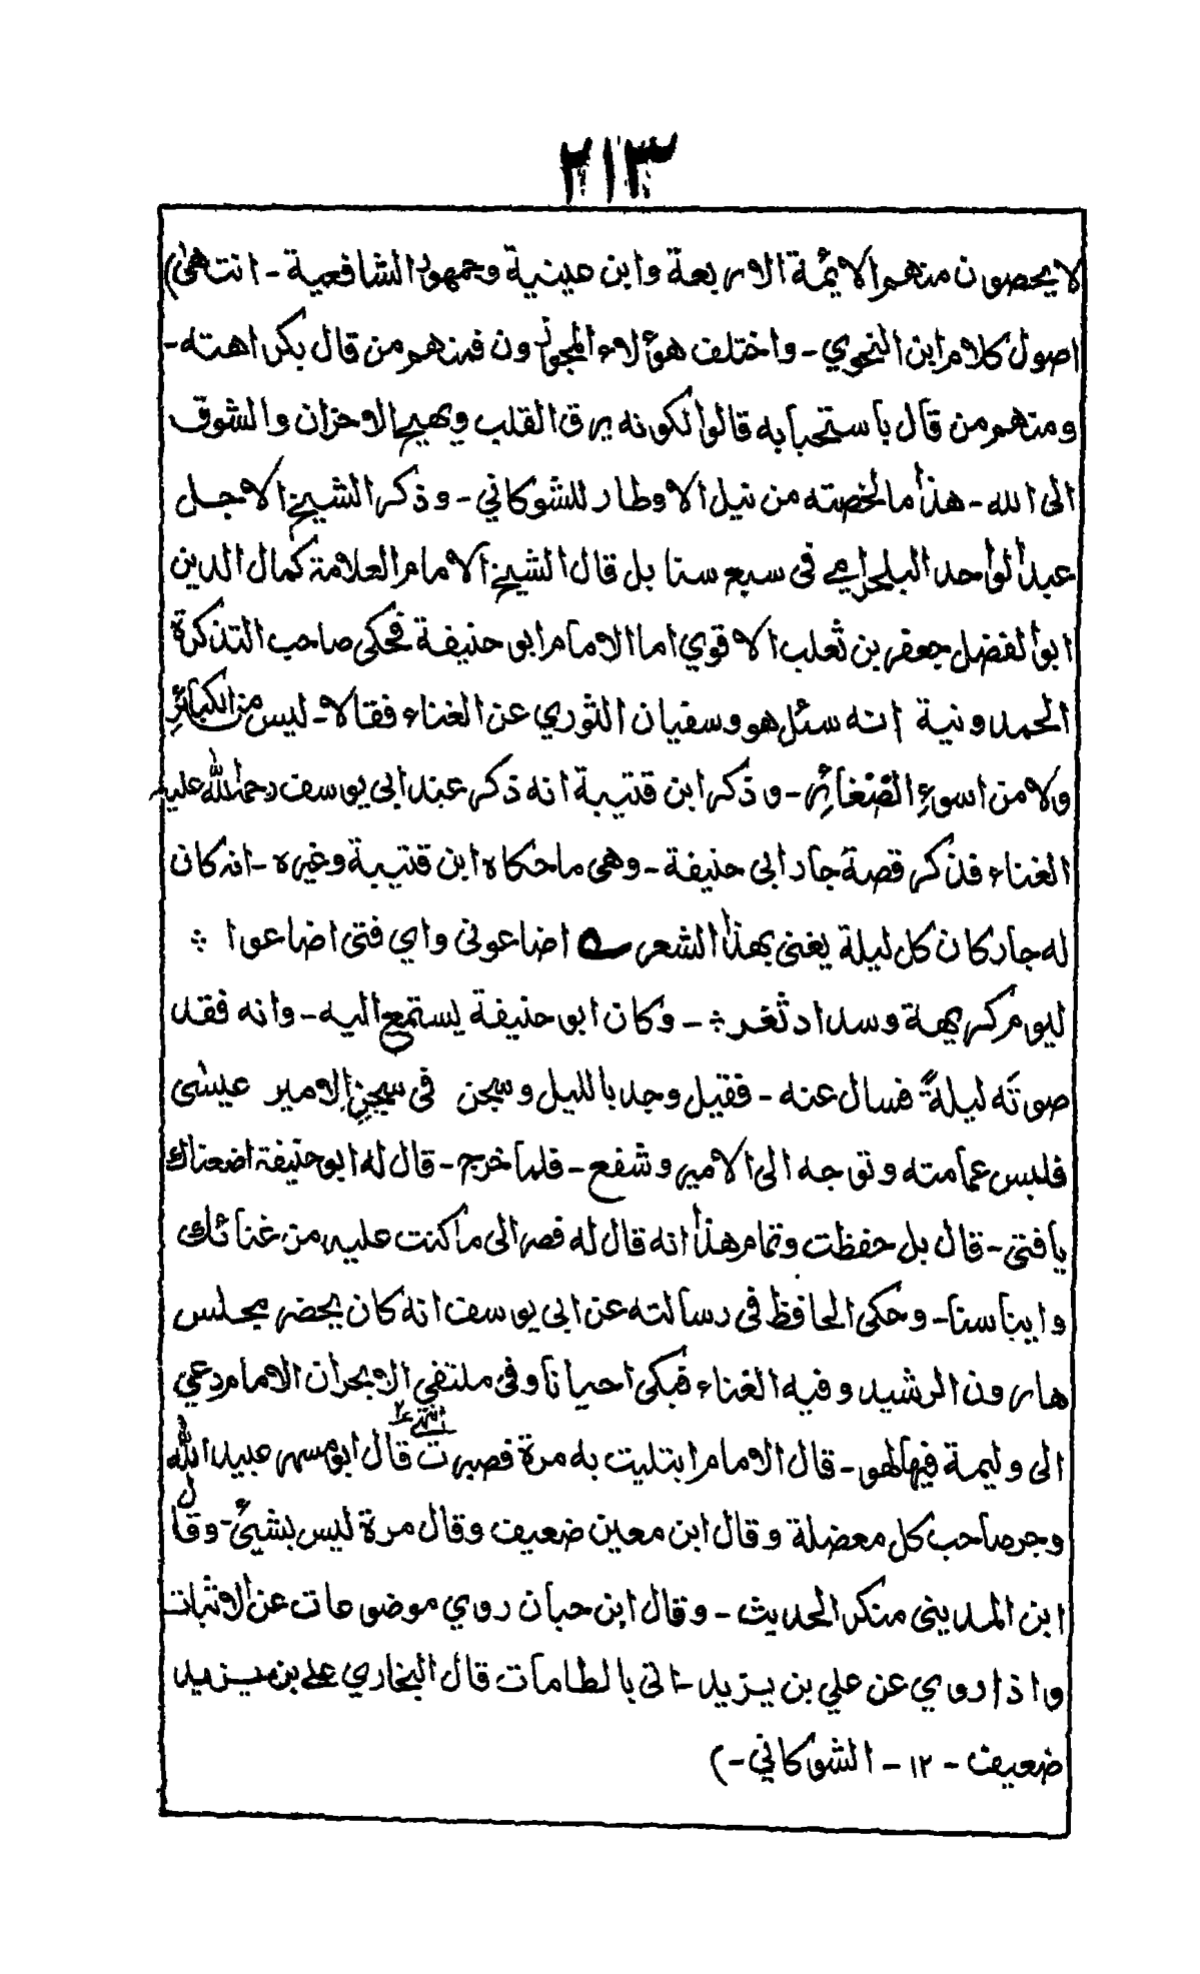 ٢١٣
لا يحصون منهم الايمٔة الاربعة وابن عينية وجمهور الشافعية - انتهىٰ)
اصول كلام ابن النحوي - واختلف هؤلاء المجوزون فمنهم من قال بكراهته -
ومنهم من قال باستحبابه قالوا لكونه يرق القلب ويهيج الاحزان والشوق
الى الله - هذا ما لخصته من نيل الاوطار للشوكاني - وذكر الشيخ الاجل
عبد الواحد البلجرامي في سبع سنابل قال الشيخ الامام العلامة كمال الدين
ابو الفضل جعفر بن ثعلب الاقوي اما الامام ابو حنيفة فحكى صاحب التذكرة
الحمدونية انه سئل هو وسفيان الثوري عن الغناء فقالا - ليس من الكبائر
ولا من اسوء الصغائر - وذكر ابن قتيبة انه ذكر عند ابي يوسف رحمة الله عليه
الغناء فذكر قصة جار ابي حنيفة - وهي ما حكاه ابن قتيبة وغيره - انه كان
له جار كان كل ليلة يغني بهذا الشعر ے اضاعوني واي فتى اضاعوا ؞
ليوم كريهة وسداد ثغر ؞ - وكان ابو حنيفة يستمع اليه - وانه فقد
صوتَه ليلةً فسال عنه - فقيل وجد بالليل وسجن في سجن الامير عيسٰى
فلبس عمامته وتوجه الى الامير وشفع - فلما خرج - قال له ابو حنيفة اضعناك
يا فتى - قال بل حفظت وتمام هذا انه قال له فصر الى ما كنت عليه من غنائك
وايناسنا - وحكى الحافظ في رسالته عن ابي يوسف انه كان يحضر مجلس
هارون الرشيد وفيه الغناء فبكى احيانا وفي ملتقي الابحران الامام دعي
الى وليمة فيها لهو - قال الامام ابتليت به مرة فصبرت انتهى ٢ قال ابو مسهر عبيد الله
وجر صاحب كل معضلة وقال ابن معين ضعيف وقال مرة ليس بشيئ - وقال
ابن المديني منكر الحديث - وقال ابن حبان روي موضوعات عن الاثبات
واذا روي عن علي بن يزيد - اتى بالطامات قال البخاري علي بن يزيد
ضعيف - ١٢ - الشوكاني - )